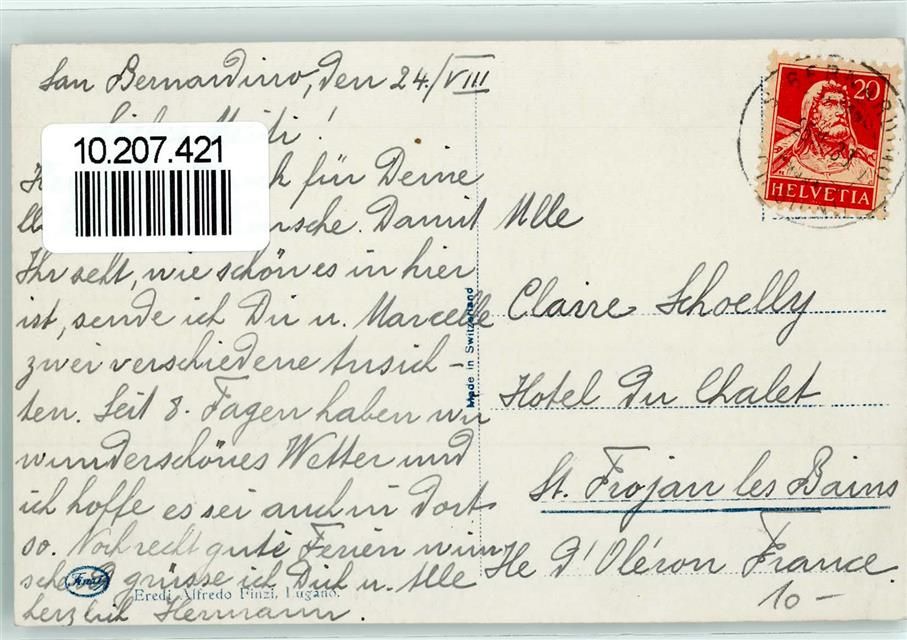 San Bernardino, den 24./VIII
10.207.421
für Deine
Damit
Ihr seht, wie schön es in hier
ist, sende ich Dir u. Marcelle
zwei verschiedene Ansich-
ten. Seit 8. Tagen haben wir
wunderschönes Wetter und
ich hoffe es sei auch in Dort
so. Noch recht gute Ferien wün
grüsse ich Dich u. Alle
herzlich Hermann
Eredi Alfredo Finzi, Lugano.
Made in Switzerland
20
HELVETIA
Mlle
Claire Schoelly
Hotel du Chalet
St. Trojan les Bains
Ile d'Oléron France
10 –